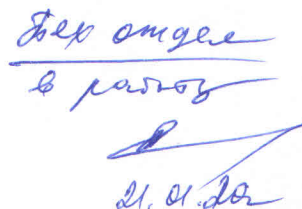 Тех отдел
в работу
21.01.202